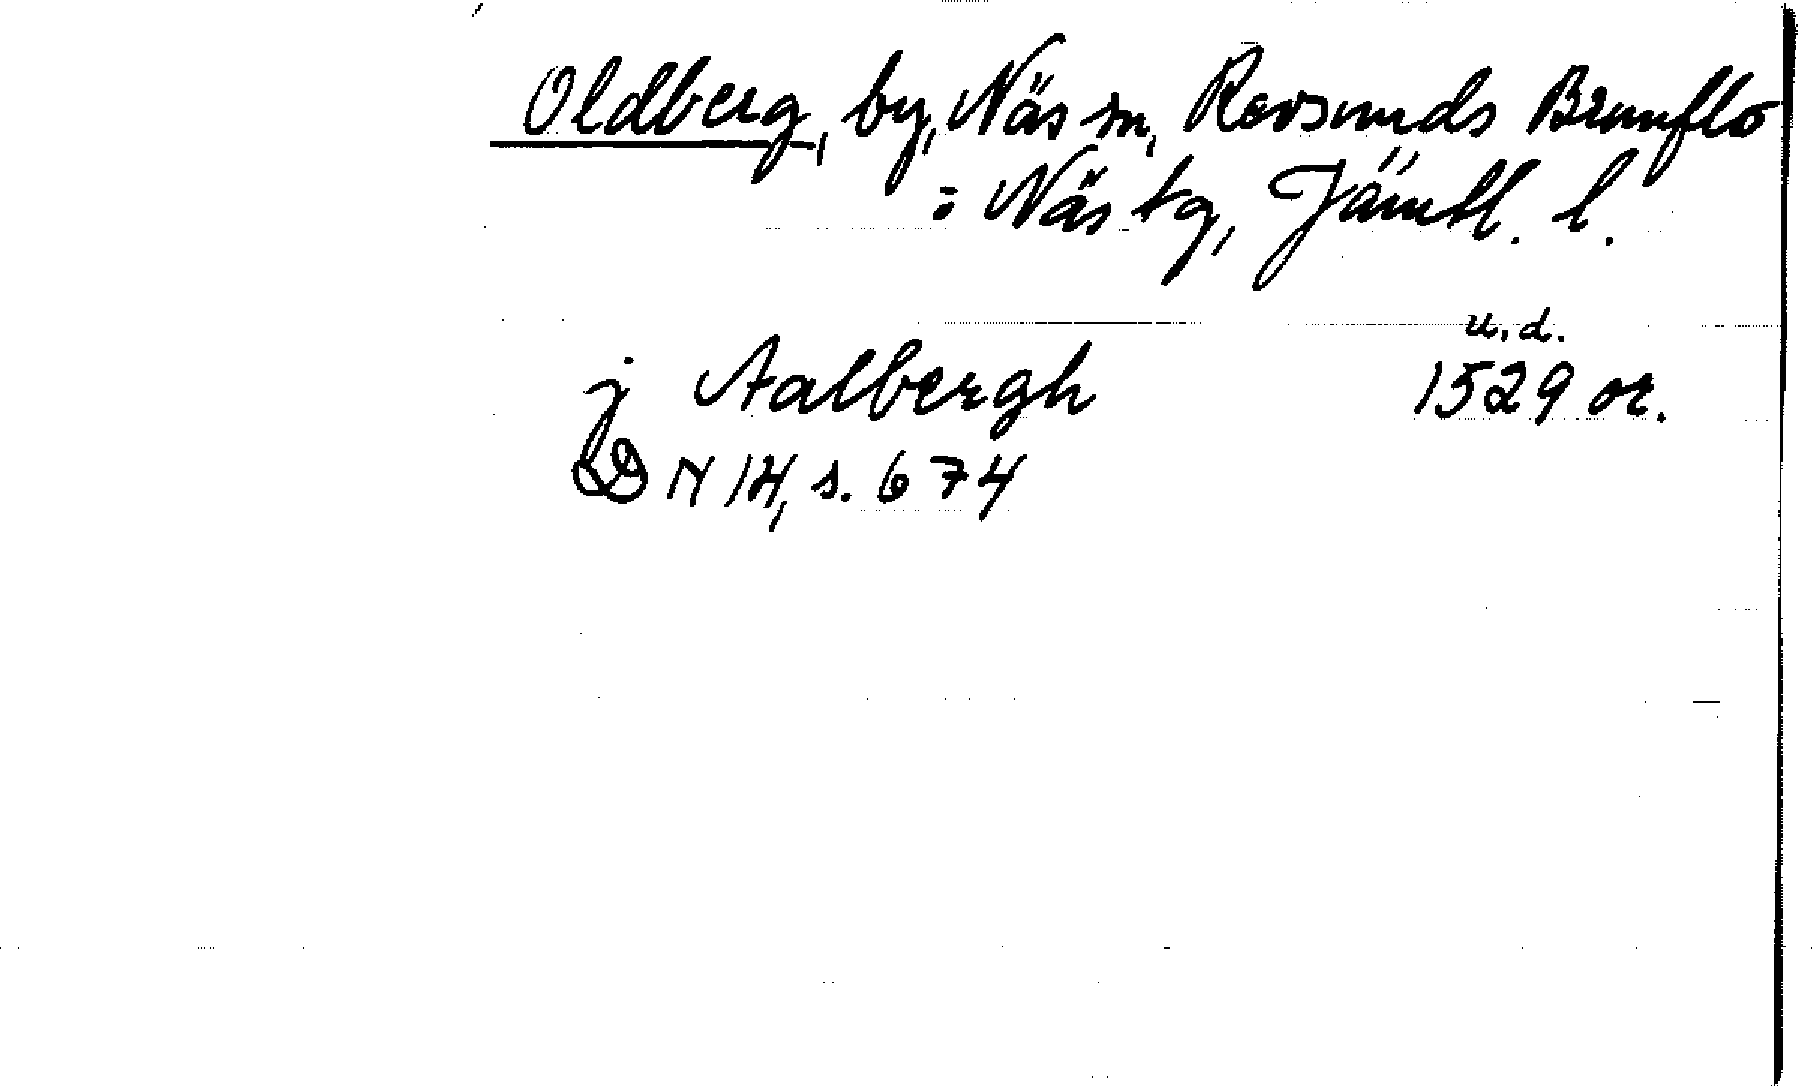 Oldberg, by, Näs sn, Revsunds Brunflo
: Näs tg, Jämtl. l.
u.d.
j Aalbergh 1529 or.
DN 14, s. 674